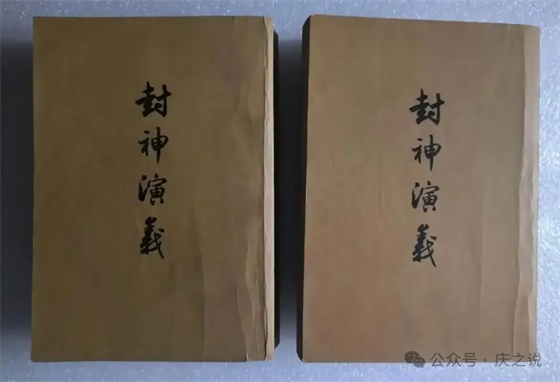 封神演義
封神演義
公众号·庆之说